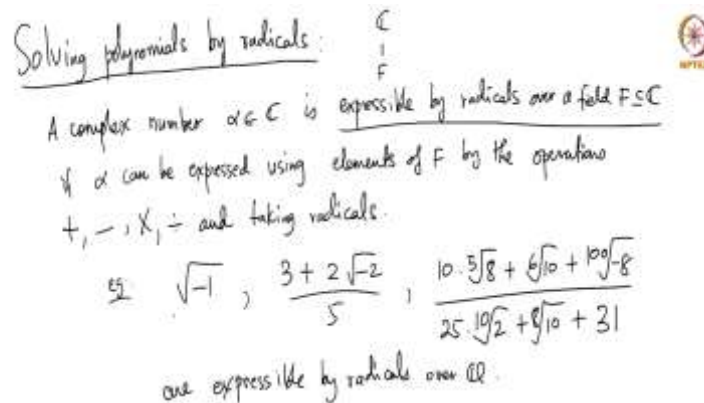 Solving polynomials by radicals:
ℂ
|
F
NPTEL
A complex number α ∈ ℂ is expressible by radicals over a field F ⊆ ℂ
if α can be expressed using elements of F by the operations
+, −, ×, ÷ and taking radicals.
eg √-1 , (3 + 2√-2)/5 , (10·⁵√8 + ⁶√10 + ¹⁰⁰√-8)/(25·¹⁰√2 + ⁸√10 + 31)
are expressible by radicals over ℚ.